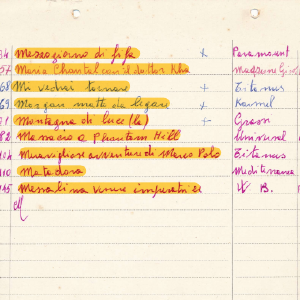 34 Mezzogiorno di fifa x Paramount
57 Maria Chantal con il dottor Kha
68 Mi vedrai tornar + Titanus
69 Morgan matto da legare x Karmel
71 Montagna di luce (la) +
82 Massacro a Phantom Hill Universal
Meravigliose avventure di Marco Polo Titanus
110 Matadora Mediterranea
145 Messalina venere imperatrice W B.